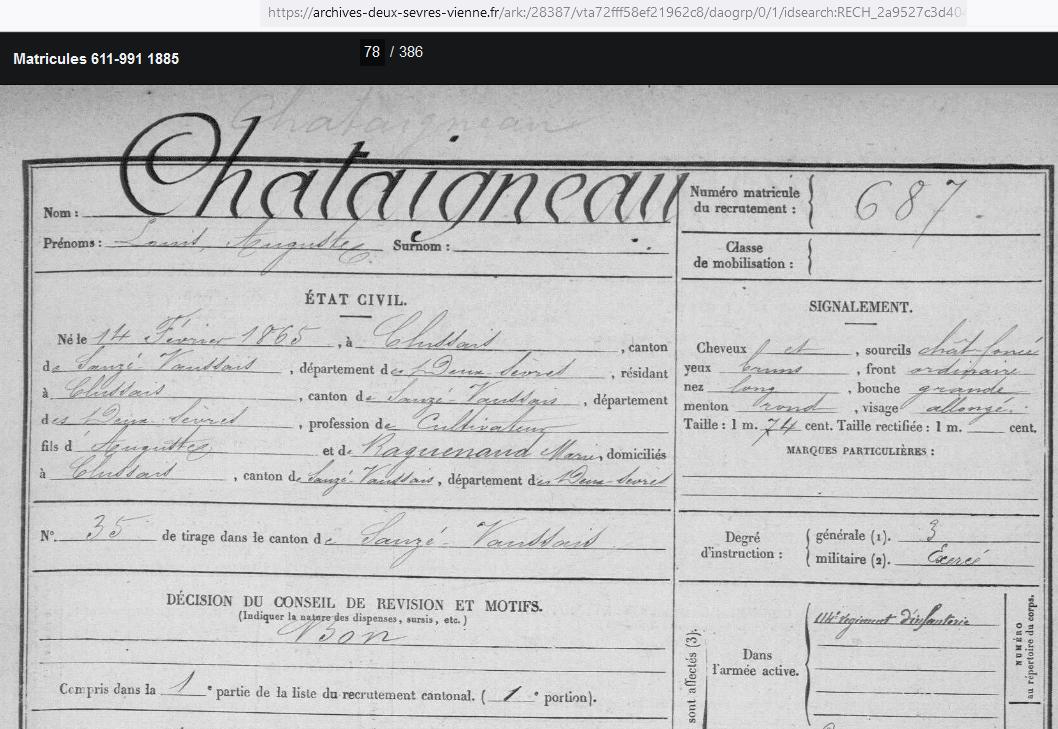 https://archives-deux-sevres-vienne.fr/ark:/28387/vta72fff58ef21962c8/daogrp/0/1/idsearch:RECH_2a9527c3d404
Matricules 611-991 1885
78 / 386
Chataigneau
Nom : Chataigneau
Prénoms : Louis, Auguste Surnom :
Numéro matricule
du recrutement : 687.
Classe
de mobilisation :
ÉTAT CIVIL.
Né le 14 Février 1865, à Clussais, canton
de Sauzé-Vaussais, département des Deux-Sèvres, résidant
à Clussais, canton de Sauzé-Vaussais, département
des Deux-Sèvres, profession de Cultivateur
fils d'Auguste et de Raguenaud Marie, domiciliés
à Clussais, canton de Sauzé-Vaussais, département des Deux-Sèvres
SIGNALEMENT.
Cheveux et, sourcils chât-foncé
yeux bruns, front ordinaire
nez long, bouche grande
menton rond, visage allongé.
Taille : 1 m. 74 cent. Taille rectifiée : 1 m. cent.
MARQUES PARTICULIÈRES :
N°. 35 de tirage dans le canton de Sauzé-Vaussais
Degré
d'instruction :
générale (1). 3
militaire (2). Exercé
DÉCISION DU CONSEIL DE REVISION ET MOTIFS.
(Indiquer la nature des dispenses, sursis, etc.)
Bon
Compris dans la 1e partie de la liste du recrutement cantonal. (1e portion).
sont affectés (3).
Dans
l'armée active.
114e régiment d'infanterie
NUMÉRO
au répertoire du corps.